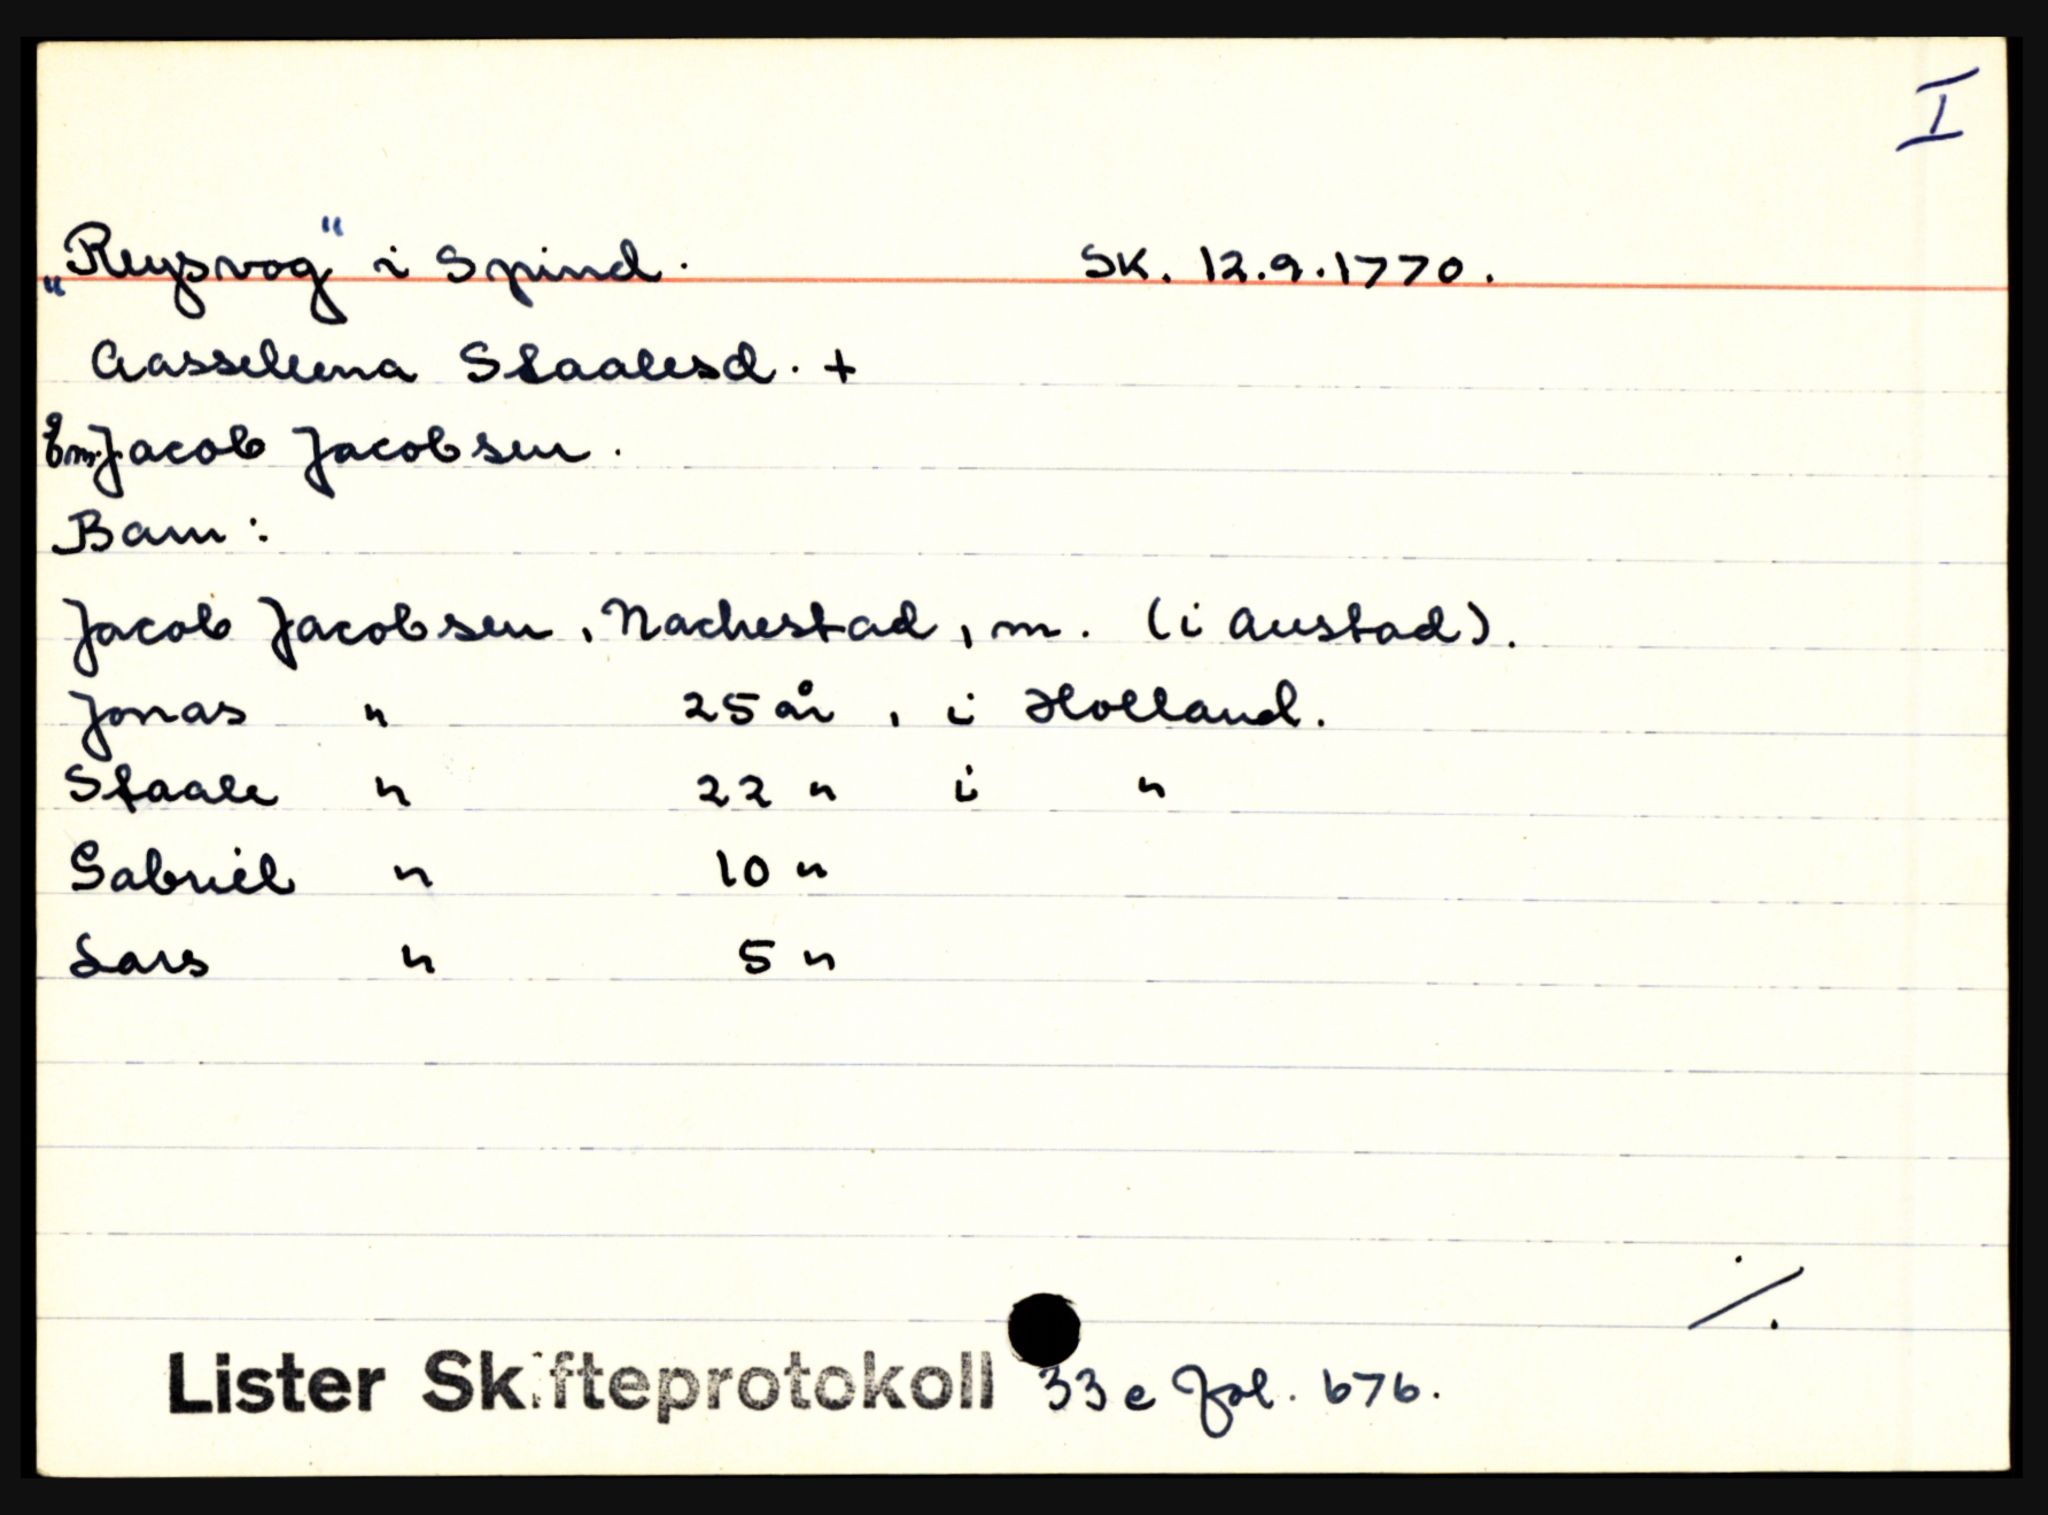 I
„Reysvog“ i Spind. SK. 12.9.1770.
Aasseleena Staalesd. +
Em. Jacob Jacobsen.
Barn:
Jacob Jacobsen, Nachestad, m. (i Austad).
Jonas " 25 år, i Holland.
Staale " 22 " i "
Gabriel " 10 "
Lars " 5 "
./.
Lister Skifteprotokoll 33 c fol. 676.